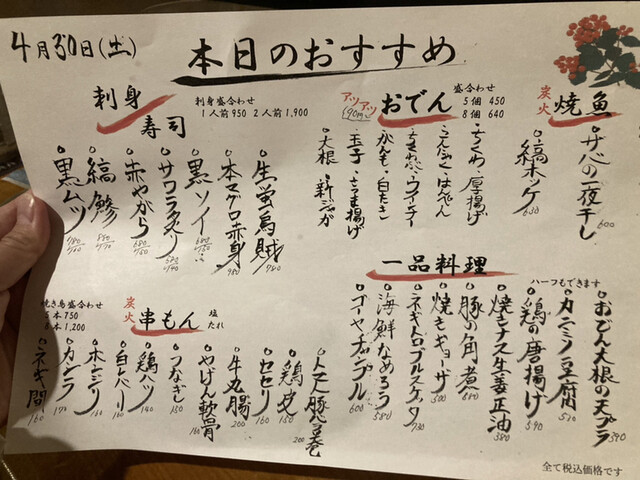 4月30日(土)
本日のおすすめ
刺身
寿司
刺身盛合わせ
1人前 950 2人前 1,900
生蛍烏賊
780
本マグロ赤身
980
黒ソイ
サワラ炙り
赤やがら
縞鯵
黒ムツ
アツアツ
おでん
盛合わせ
5個 450
8個 640
ちくわ・厚揚げ
こんにゃく・はんぺん
ちくわぶ・ウインナー
がんも・白たき
玉子・さつま揚げ
大根・新ジャガ
炭火
焼魚
サバの一夜干し
600
縞ホッケ
630
一品料理
ハーフもできます
おでん大根の天プラ
590
カンミソ豆腐
鶏の唐揚げ
590
焼ナス生姜正油
380
豚の角煮
焼きギョーザ
500
ネギトロブルスケッタ
730
海鮮なめろう
580
ゴーヤチャンプル
600
焼き鳥盛合わせ
5本 750
8本 1,200
炭火
串もん
塩
たれ
トマト豚バラ巻
200
鶏皮
150
セセリ
160
牛丸腸
200
やげん軟骨
160
つなぎ
150
鶏ハツ
140
白レバー
160
ホンジリ
160
カシラ
170
ネギ間
160
全て税込価格です